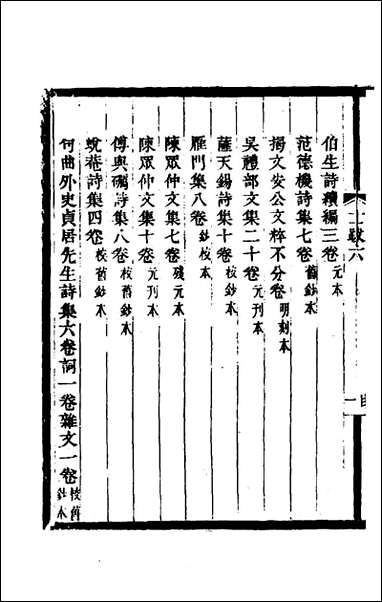 伯生詩續編三卷元本
范德機詩集七卷舊鈔本
揭文安公文粹不分卷明刻本
吳禮部文集二十卷元刊本
薩天錫詩集十卷校鈔本
雁門集八卷鈔校本
陳眾仲文集七卷殘元本
陳眾仲文集十卷元刊本
傅與礪詩集八卷校舊鈔本
蛻菴詩集四卷校舊鈔本
句曲外史貞居先生詩集六卷詞一卷雜文一卷校舊鈔本